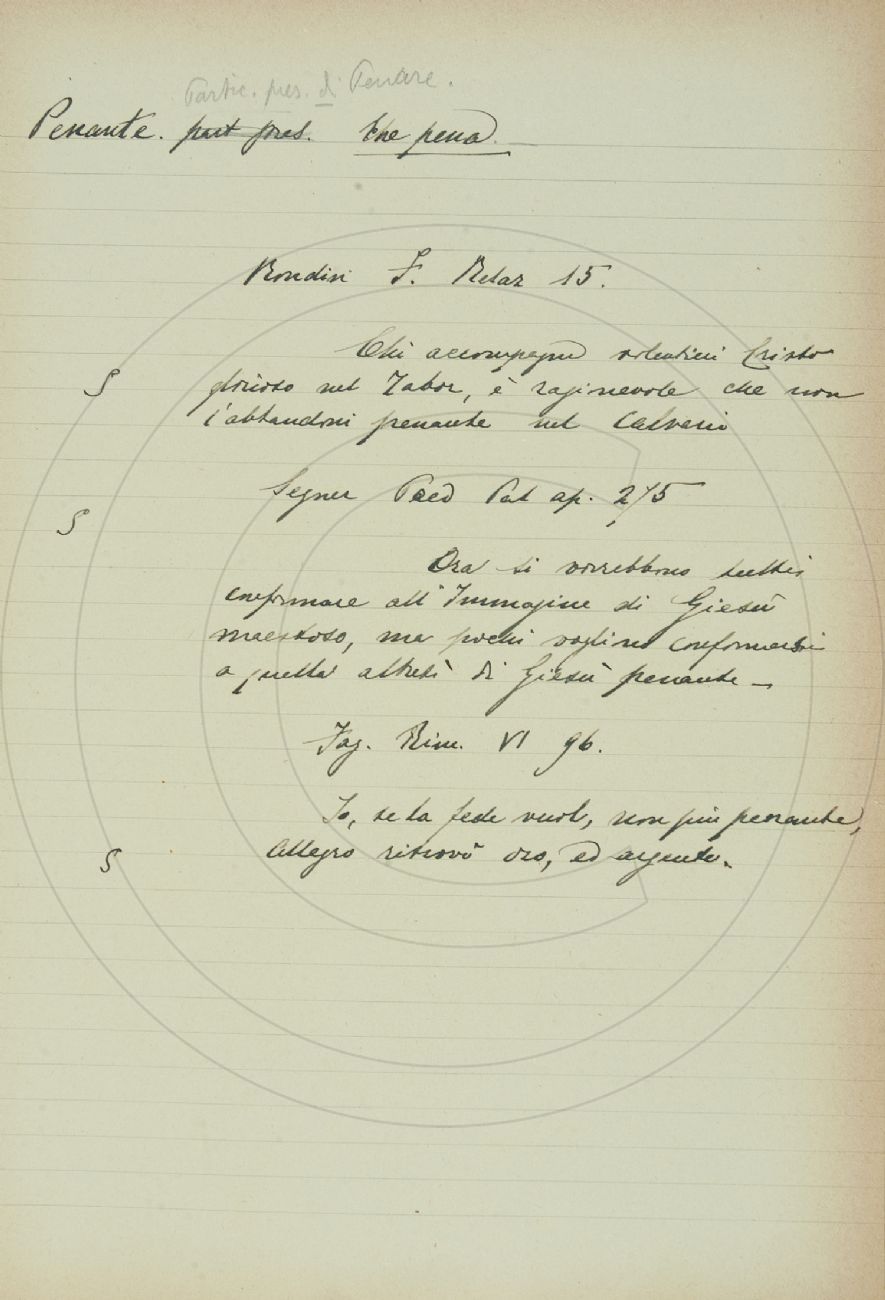 Partic. pres. di Penare.
Penante. part pres. Che pena.
Rondin F. Relaz 15.
Chi accompagnò volentieri Cristo
glorioso nel Tabor, è ragionevole che non
l'abbandoni penante nel Calvario
Segner Paed Pat ap. 275
Ora si vorrebbono tutti
conformare all'Immagine di Giesù
maestoso, ma pochi vogliono conformarsi
a quella altresì di Giesù penante —
Fag. Rim. VI 96.
Io, se la fede vuoli, non più penante,
Allegro ritrovò oro, ed argento.
S
S
S